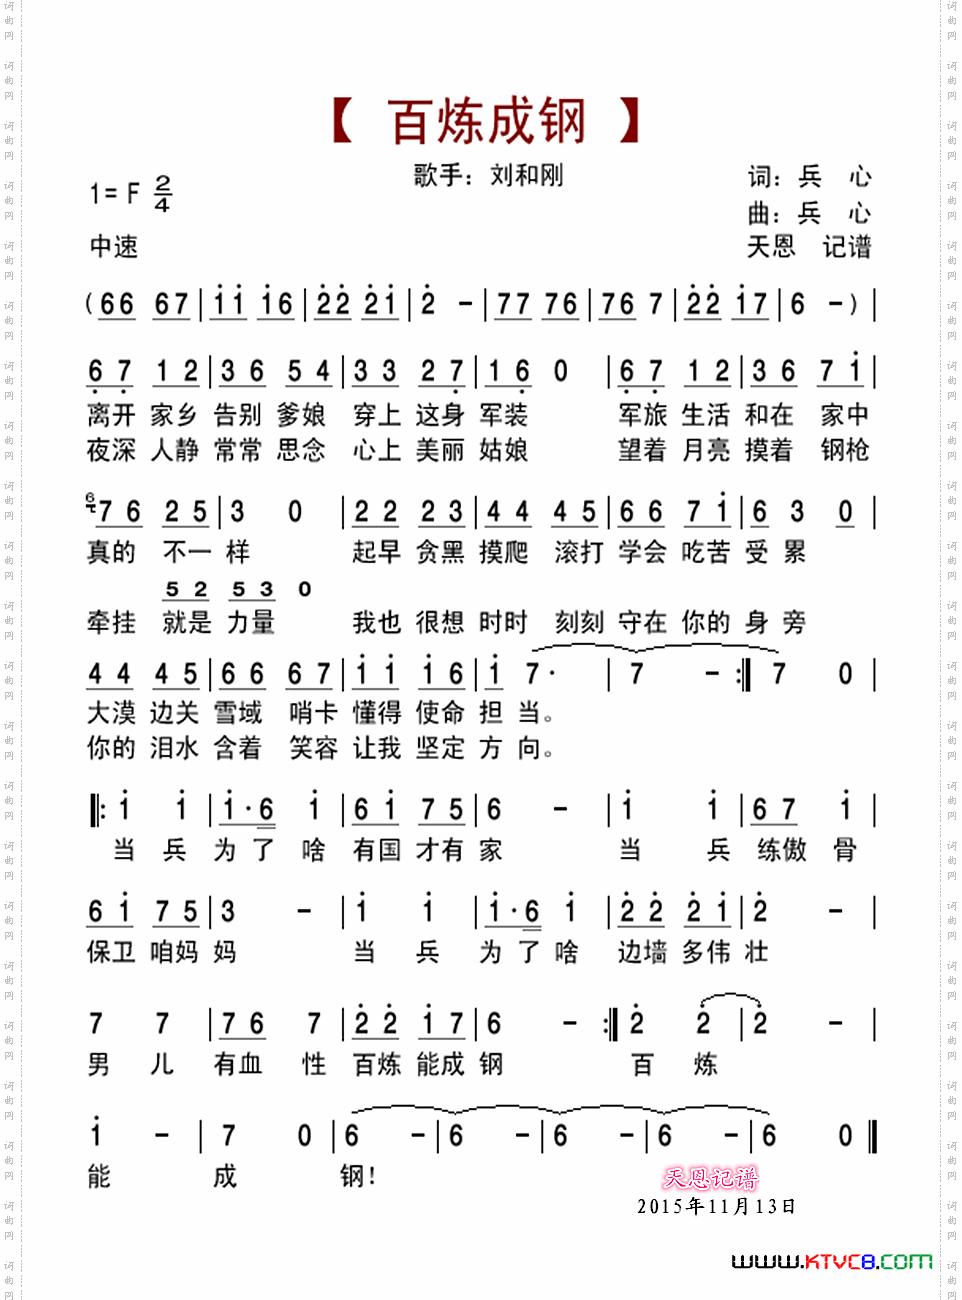 【 百炼成钢 】
歌手：刘和刚
词：兵 心
1=F 2/4
曲：兵 心
中速
天恩 记谱
( 66 67 | i i i6 | 22 2i | 2 - | 77 76 | 76 7 | 22 i7 | 6 - ) |
6 7 1 2 | 3 6 5 4 | 3 3 2 7 | 1 6 0 | 6 7 1 2 | 3 6 7 i |
离开 家乡 告别 爹娘 穿上 这身 军装 军旅 生活 和在 家中
夜深 人静 常常 思念 心上 美丽 姑娘 望着 月亮 摸着 钢枪
6 7 6 2 5 | 3 0 | 2 2 2 3 | 4 4 4 5 | 6 6 7 i | 6 3 0 |
真的 不一 样 起早 贪黑 摸爬 滚打 学会 吃苦 受 累
5 2 5 3 0
牵挂 就是 力量 我也 很想 时时 刻刻 守在 你的 身 旁
4 4 4 5 | 6 6 6 7 | i i i 6 | i 7· | 7 - :| 7 0 |
大漠 边关 雪域 哨卡 懂得 使命 担 当。
你的 泪水 含着 笑容 让我 坚定 方 向。
|: i i | i·6 i | 6 i 7 5 | 6 - | i i | 6 7 i |
当 兵 为 了 啥 有国 才有 家 当 兵 练傲 骨
6 i 7 5 | 3 - | i i | i·6 i | 2 2 2 i | 2 - |
保卫 咱妈 妈 当 兵 为 了 啥 边墙 多伟 壮
7 7 | 7 6 7 | 2 2 i 7 | 6 - :| 2 2 | 2 - |
男 儿 有血 性 百炼 能成 钢 百 炼
i - | 7 0 | 6 - | 6 - | 6 - | 6 - | 6 0 ||
能 成 钢！
天恩记谱
2015年11月13日
www.KTVC8.com
词曲网